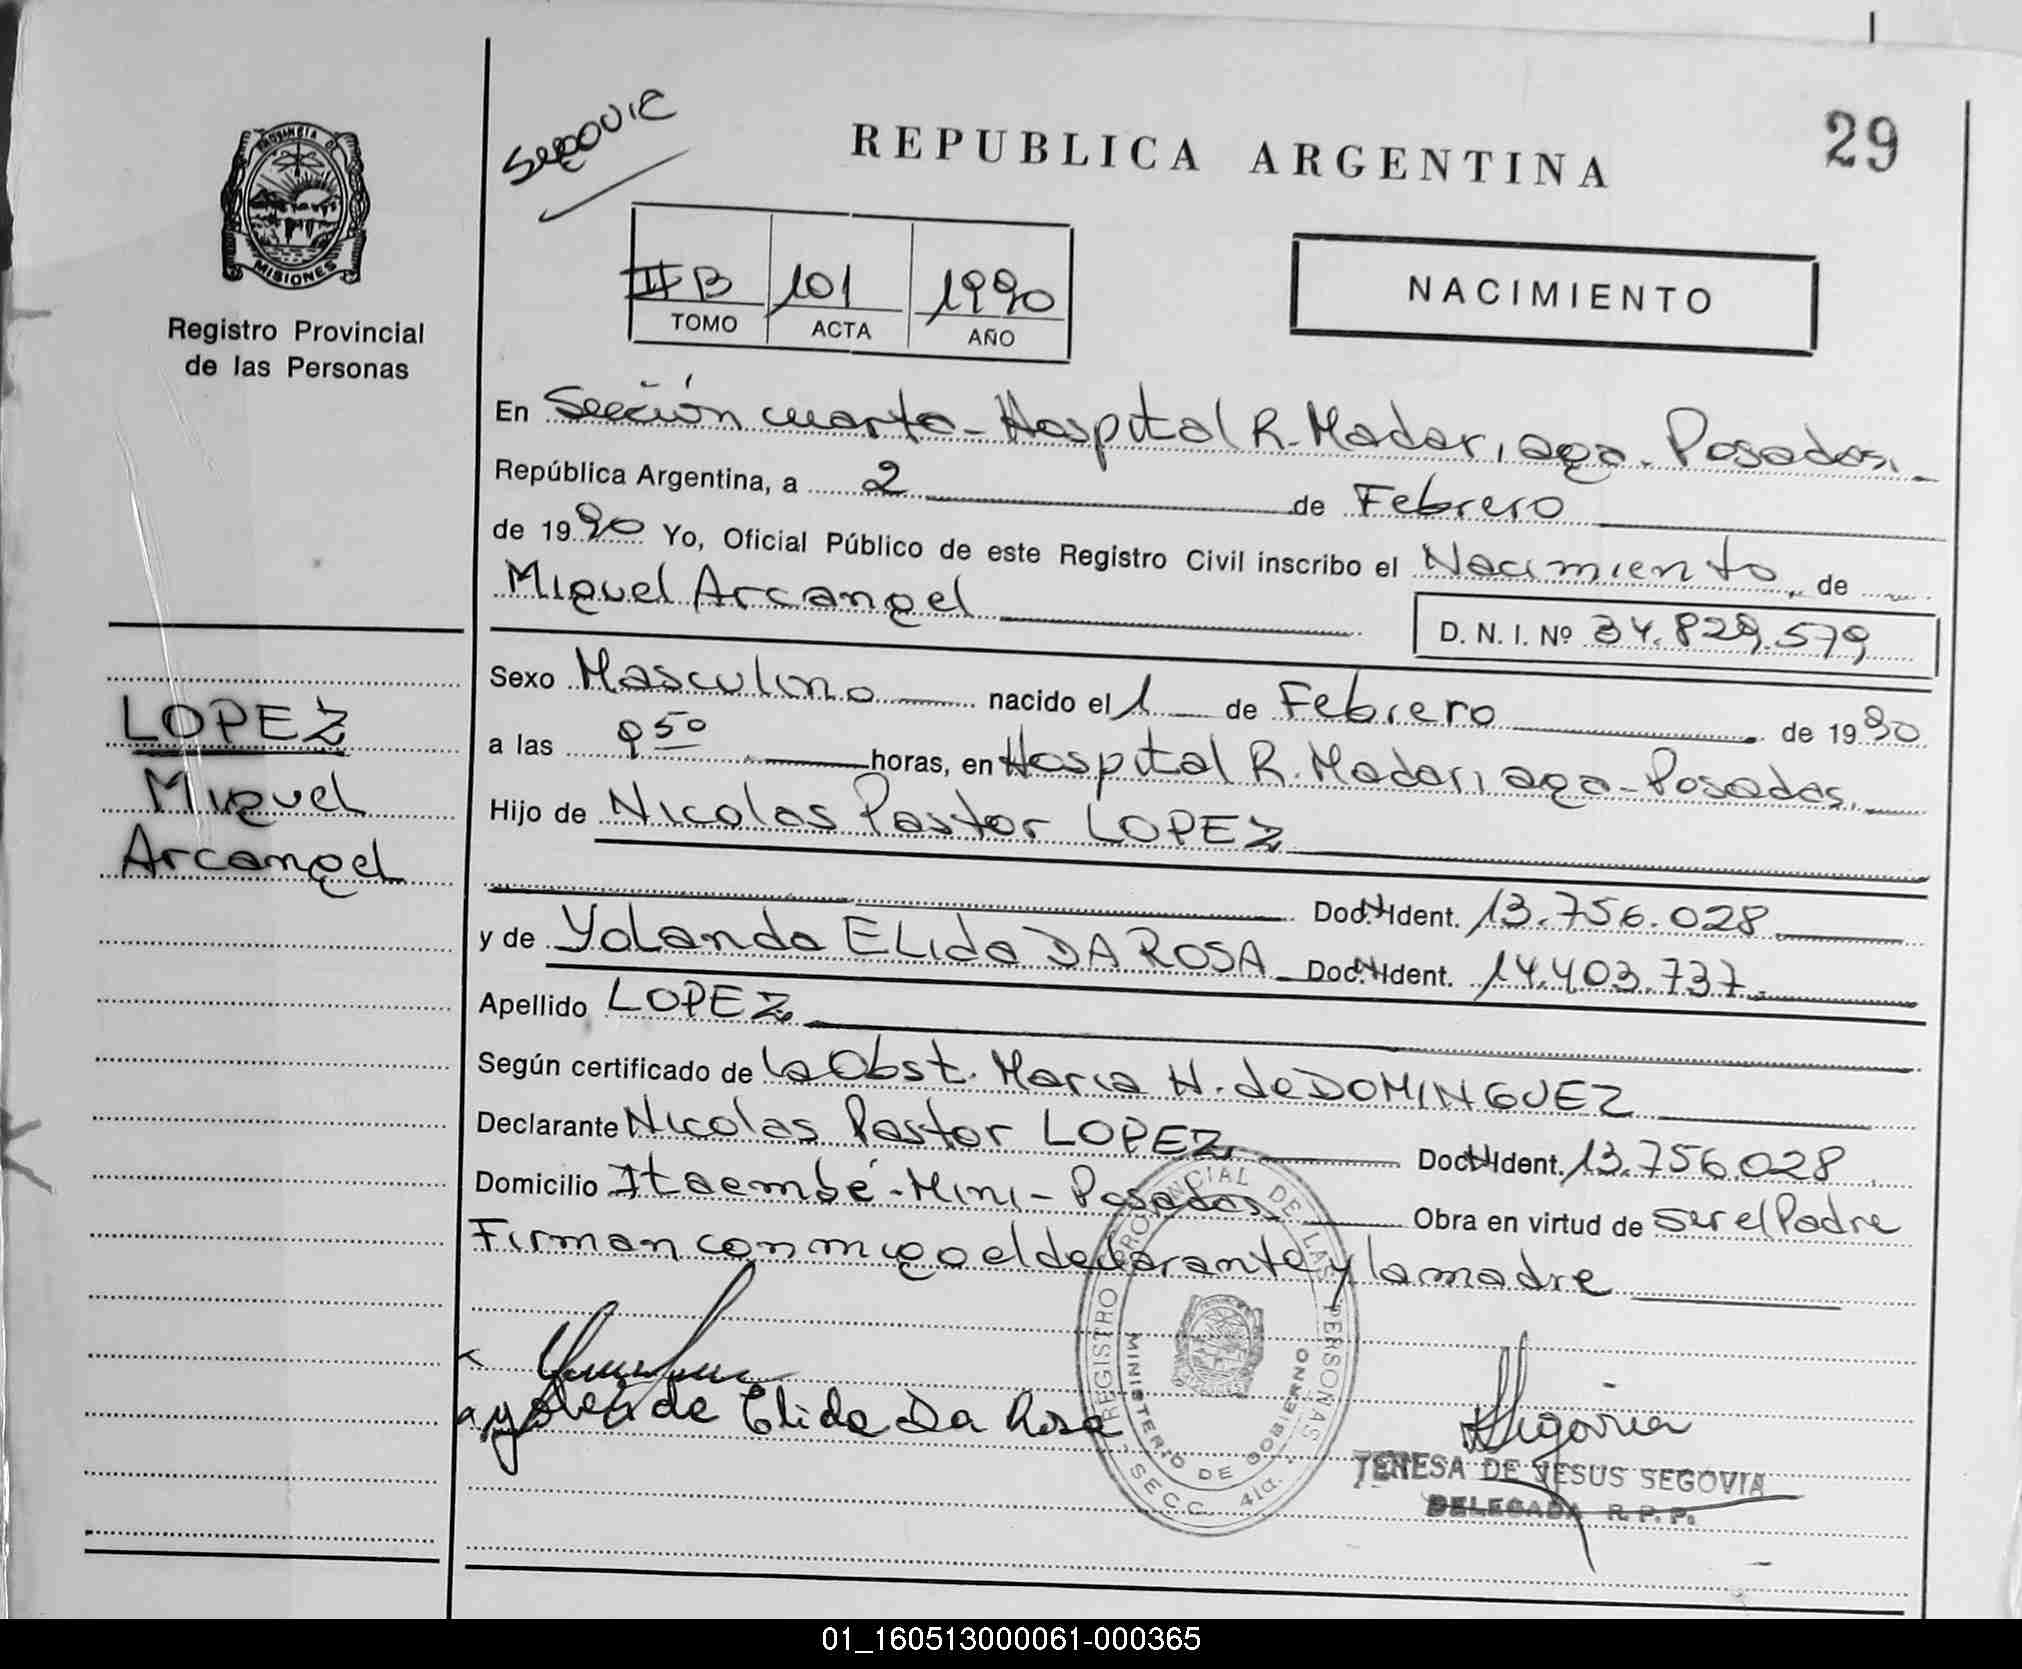 Segovia
REPUBLICA ARGENTINA
29
PROVINCIA DE MISIONES
Registro Provincial
de las Personas
II B 101 1990
TOMO ACTA AÑO
NACIMIENTO
En Sección cuarta - Hospital R. Madariaga - Posadas,
República Argentina, a 2 de Febrero
de 1990 Yo, Oficial Público de este Registro Civil inscribo el Nacimiento de
Miguel Arcangel
D. N. I. Nº 34.829.579
Sexo Masculino nacido el 1 de Febrero de 1990
a las 9 50 horas, en Hospital R. Madariaga - Posadas.
Hijo de Nicolas Pastor LOPEZ
Doc. Ident. 13.756.028
y de Yolanda ELida DA ROSA Doc. Ident. 14.403.737
Apellido LOPEZ
Según certificado de la Obst. Maria H. de DOMINGUEZ
Declarante Nicolas Pastor LOPEZ Doc. Ident. 13.756.028
Domicilio Itaembé - Mini - Posadas Obra en virtud de ser el Padre
Firman conmigo el declarante y la madre
LOPEZ
Miguel
Arcangel
Yolanda Elida Da Rosa
REGISTRO PROVINCIAL DE LAS PERSONAS
MINISTERIO DE GOBIERNO
SECC. 4ta.
Segovia
TERESA DE JESUS SEGOVIA
DELEGADA R. P. P.
01_160513000061-000365